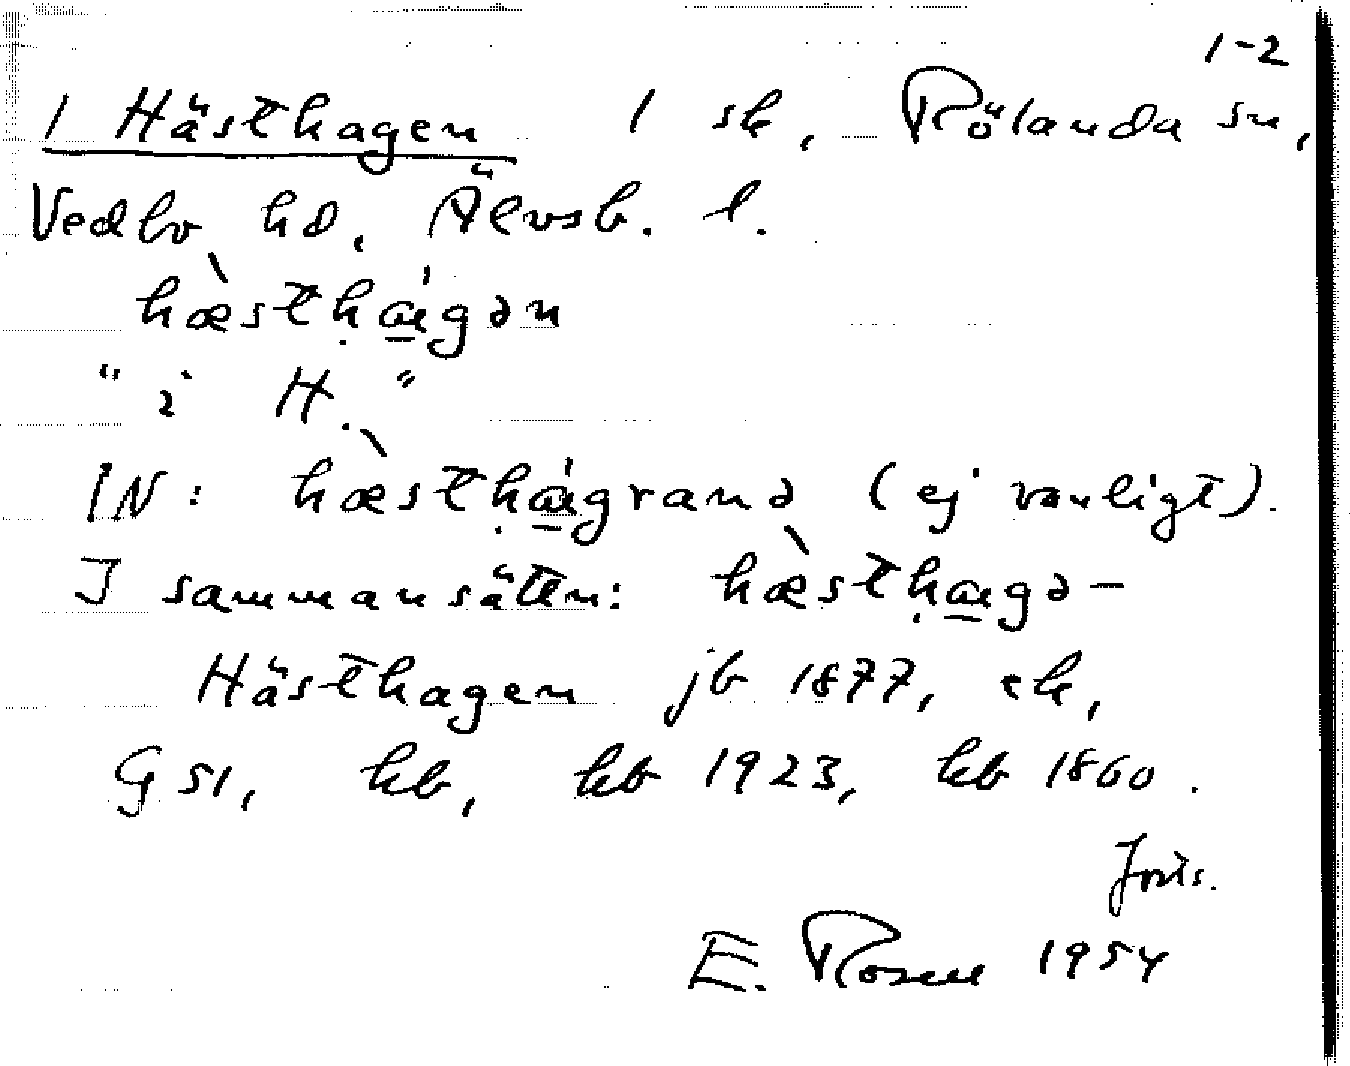 1-2
1 Hästhagen 1 sk, Rölanda sn,
Vedbo hd, Älvsb. l.
hæ̀sthá̱gən
"i H."
IN: hæ̀sthá̱grana (ej vanligt).
I sammansättn: hæ̀stha̱gə-
Hästhagen jb 1877, ek,
GSl, kb, kb 1923, kb 1860.
E. Rosell 1954